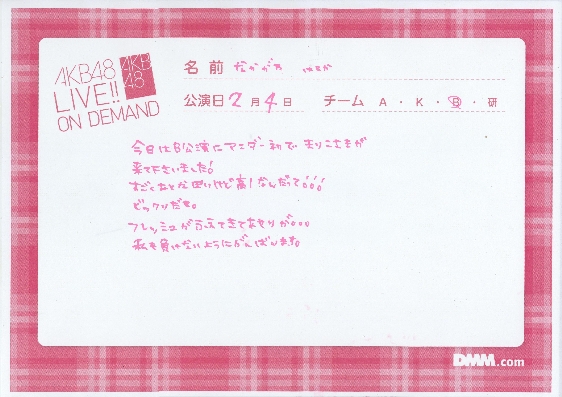 AKB48
LIVE!!
ON DEMAND
AKB
48
名前 なかがわ はるか
公演日 2月4日 チーム A・K・B・研
今日はB公演にアンダー初でまりこさまが
来て下さいました!
すごく
ビックリだぁ。
フレッシュが
私も負けないようにがんばります。
DMM.com